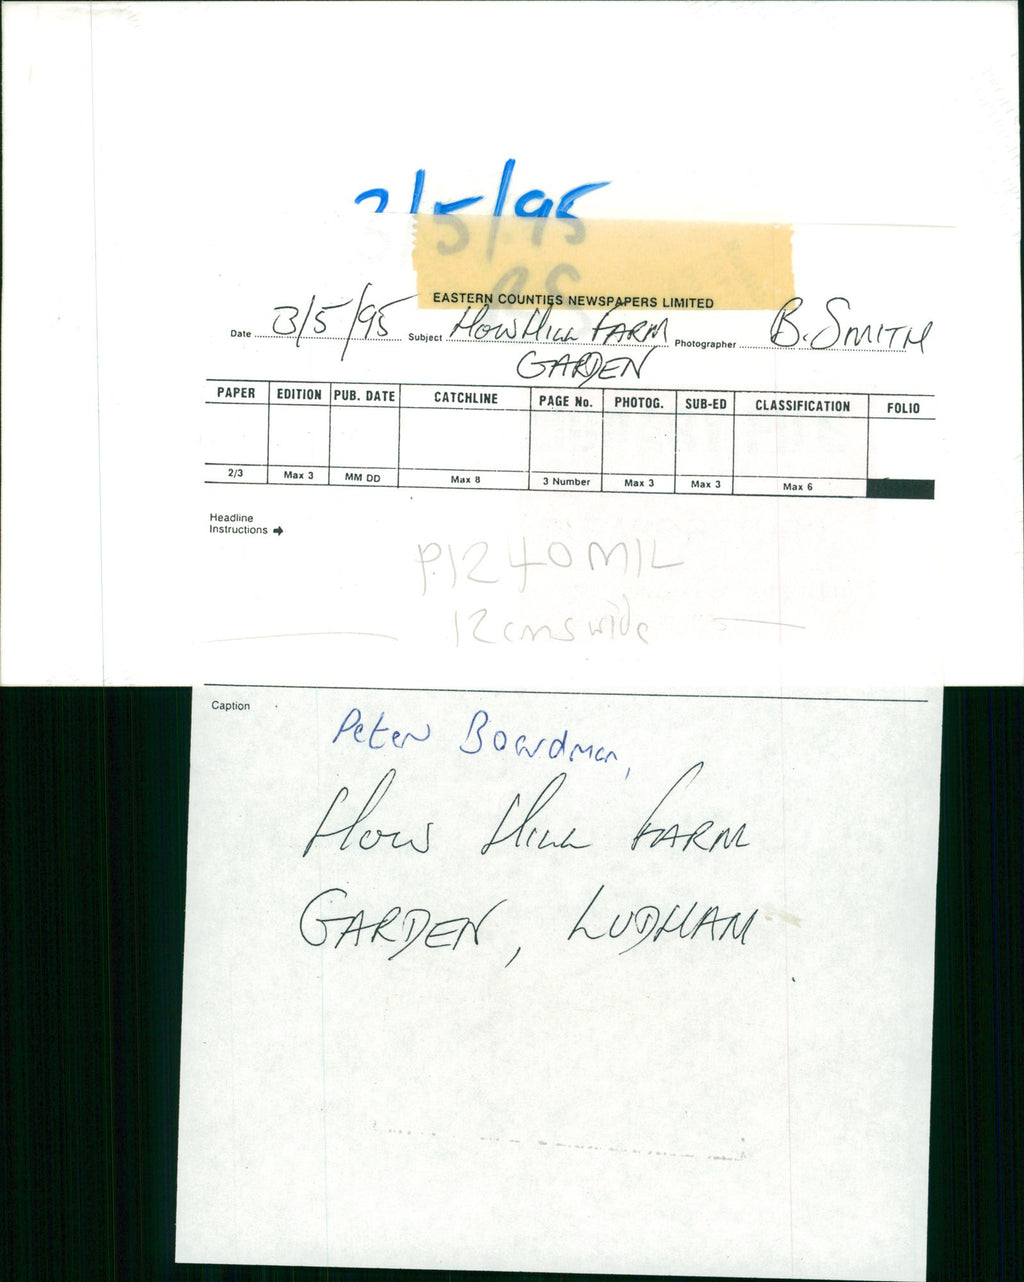 3/5/95
EASTERN COUNTIES NEWSPAPERS LIMITED
Date 3/5/95 Subject How Hill FARM GARDEN Photographer B. SMITH
PAPER EDITION PUB. DATE CATCHLINE PAGE No. PHOTOG. SUB-ED CLASSIFICATION FOLIO
2/3 Max 3 MM DD Max 8 3 Number Max 3 Max 3 Max 6
Headline
Instructions
P12 40MIL
12cms wide
Caption
Peter Boardman,
How Hill FARM
GARDEN, LUDHAM